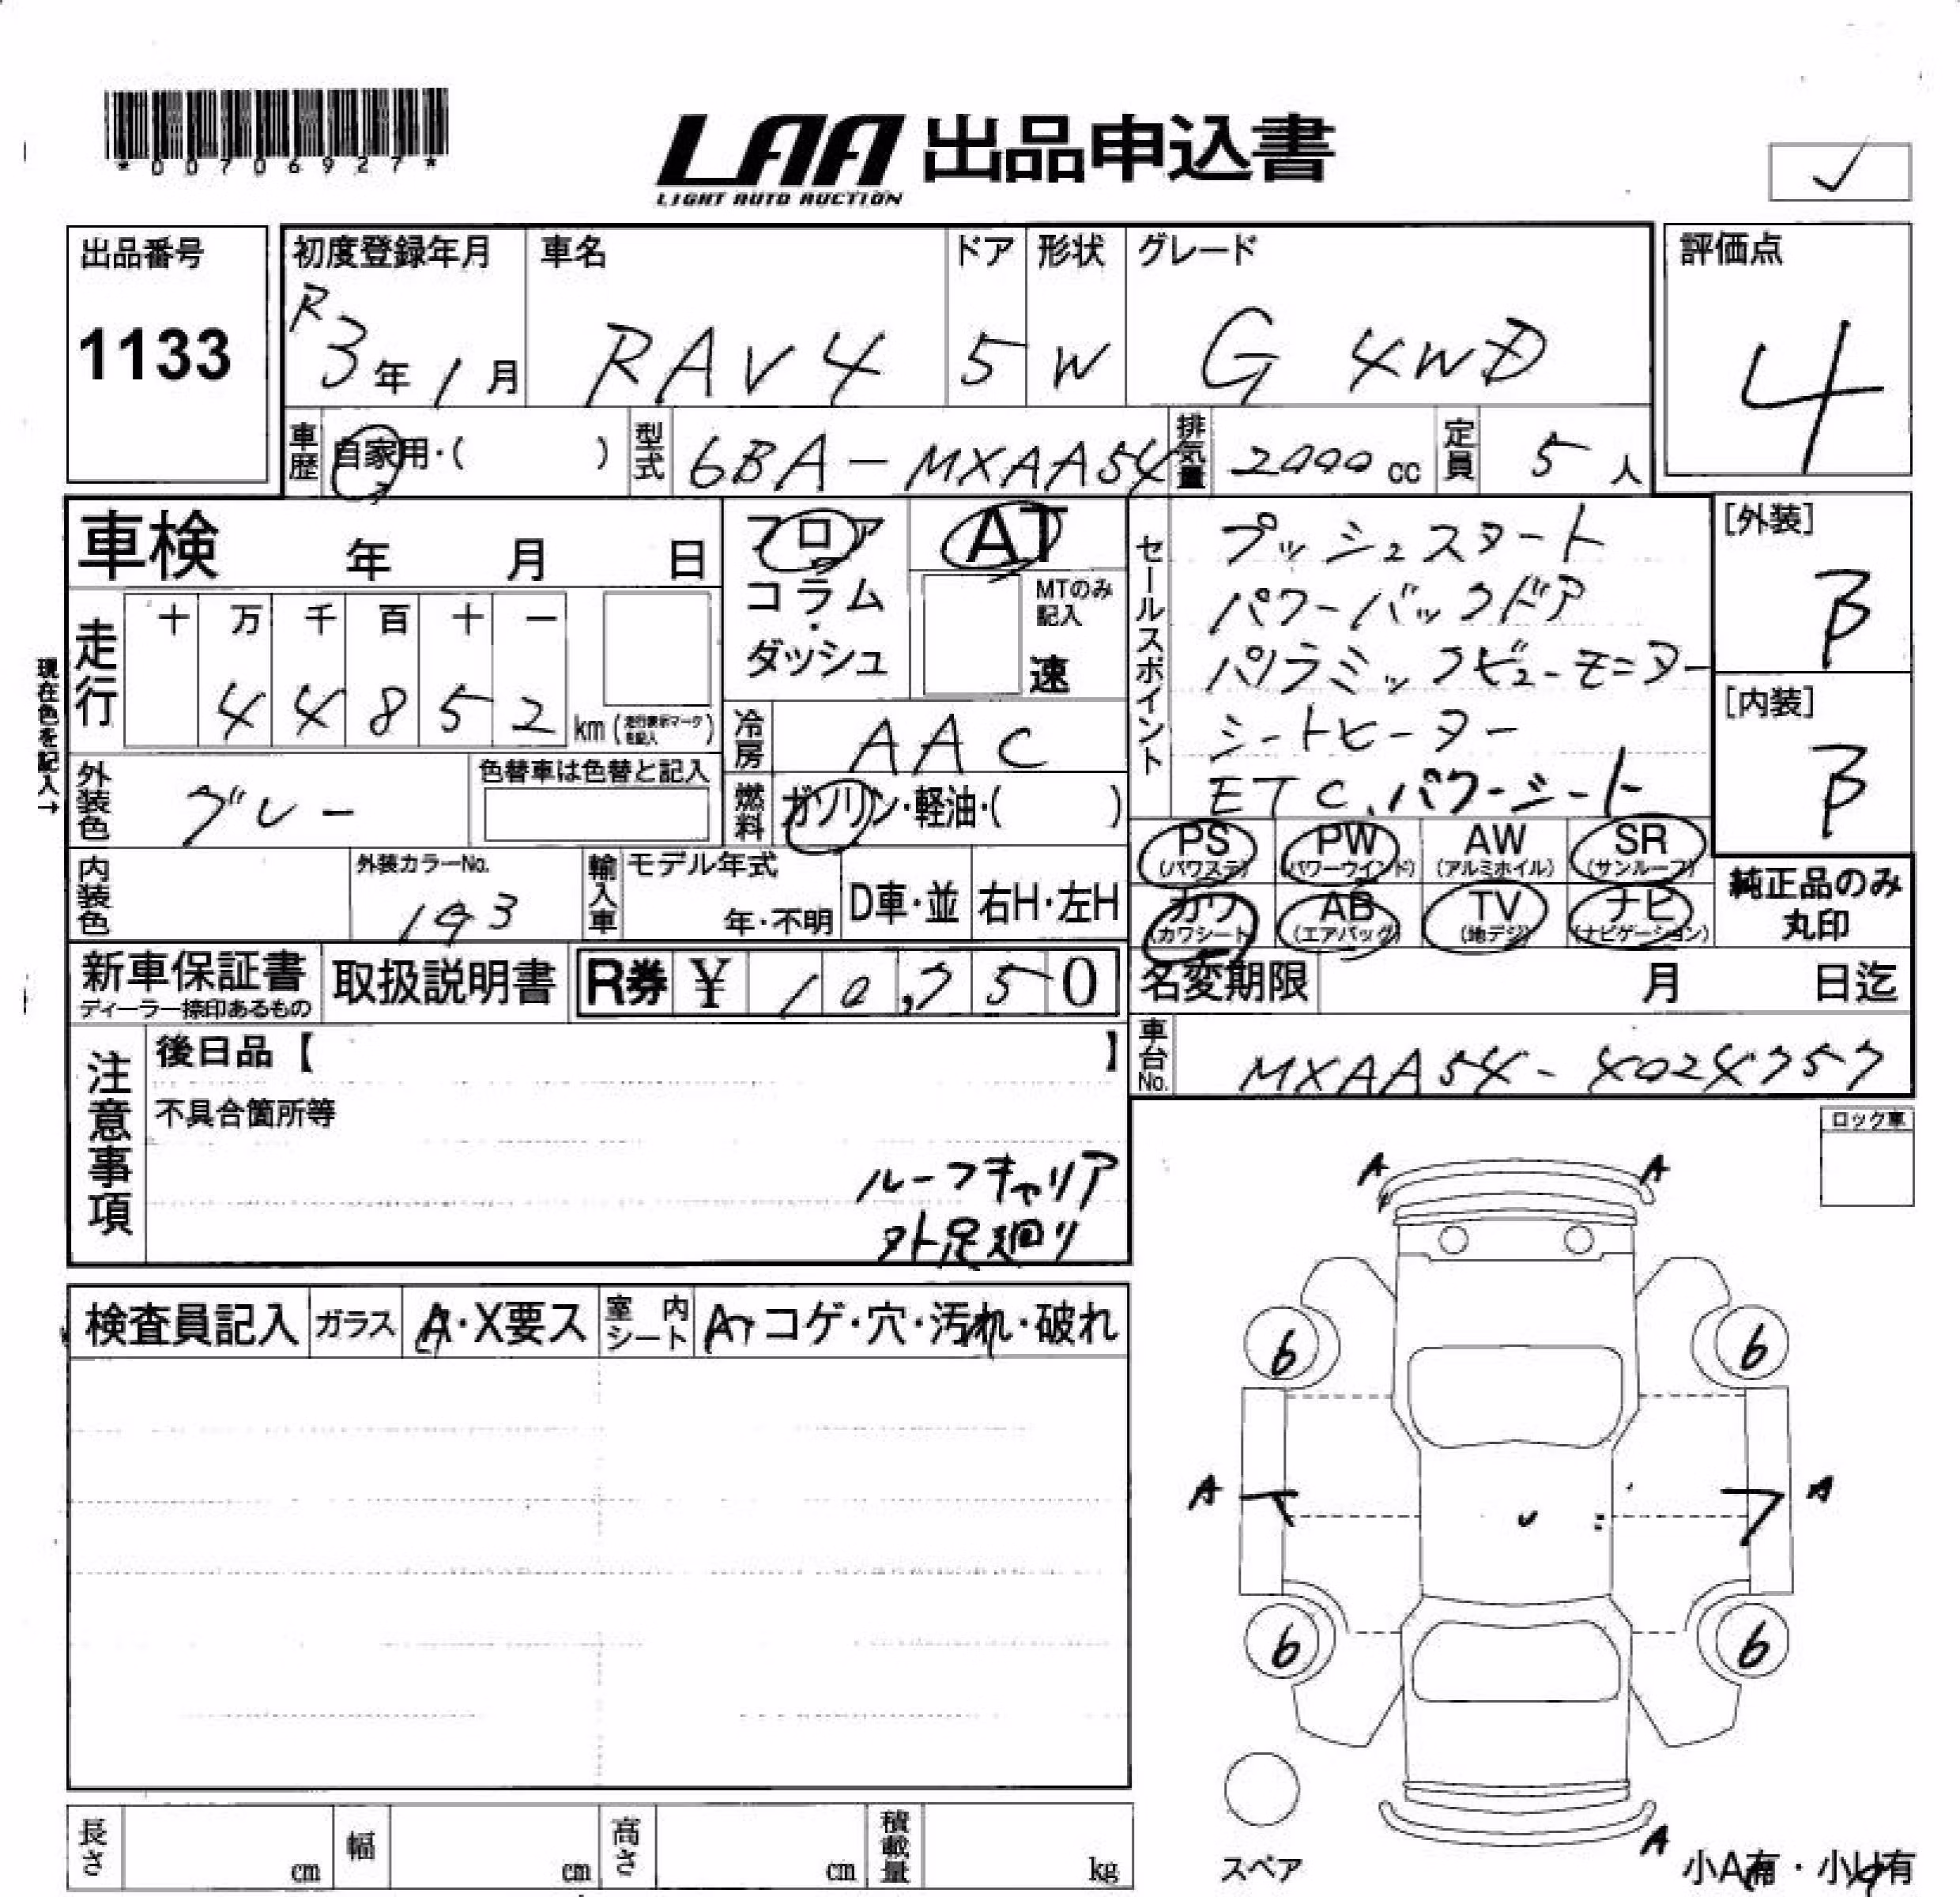 *00706927*
LAA 出品申込書
LIGHT AUTO AUCTION
出品番号
1133
初度登録年月
R3年1月
車名
RAV4
ドア
5
形状
W
グレード
G 4WD
評価点
4
車歴
自家用・( )
型式
6BA-MXAA54
排気量
2000 cc
定員
5人
車検 年 月 日
フロア
コラム
・
ダッシュ
AT
MTのみ
記入
速
セールスポイント
プッシュスタート
パワーバックドア
パノラミックビューモニター
シートヒーター
ETC、パワーシート
[外装]
B
[内装]
B
現在色を記入→
走行
十 万 千 百 十 一
4 4 8 5 2 km (走行表示マークを記入)
冷房
AAC
外装色
グレー
色替車は色替と記入
燃料
ガソリン・軽油・( )
PS (パワステ)
PW (パワーウインド)
AW (アルミホイル)
SR (サンルーフ)
カワ (カワシート)
AB (エアバッグ)
TV (地デジ)
ナビ (ナビゲーション)
純正品のみ
丸印
内装色
外装カラーNo.
1G3
輸入車
モデル年式
年・不明
D車・並
右H・左H
新車保証書
ディーラー捺印あるもの
取扱説明書
R券 ¥ 10,750
名変期限 月 日迄
車台No.
MXAA54-4024757
注意事項
後日品【 】
不具合箇所等
ルーフキャリア
外足廻り
ロック車
検査員記入
ガラス
A・X要ス
室内シート
A・コゲ・穴・汚れ・破れ
A A
6 6
A A
6 6
スペア
A
小A有・小U有
長さ cm
幅 cm
高さ cm
積載量 kg